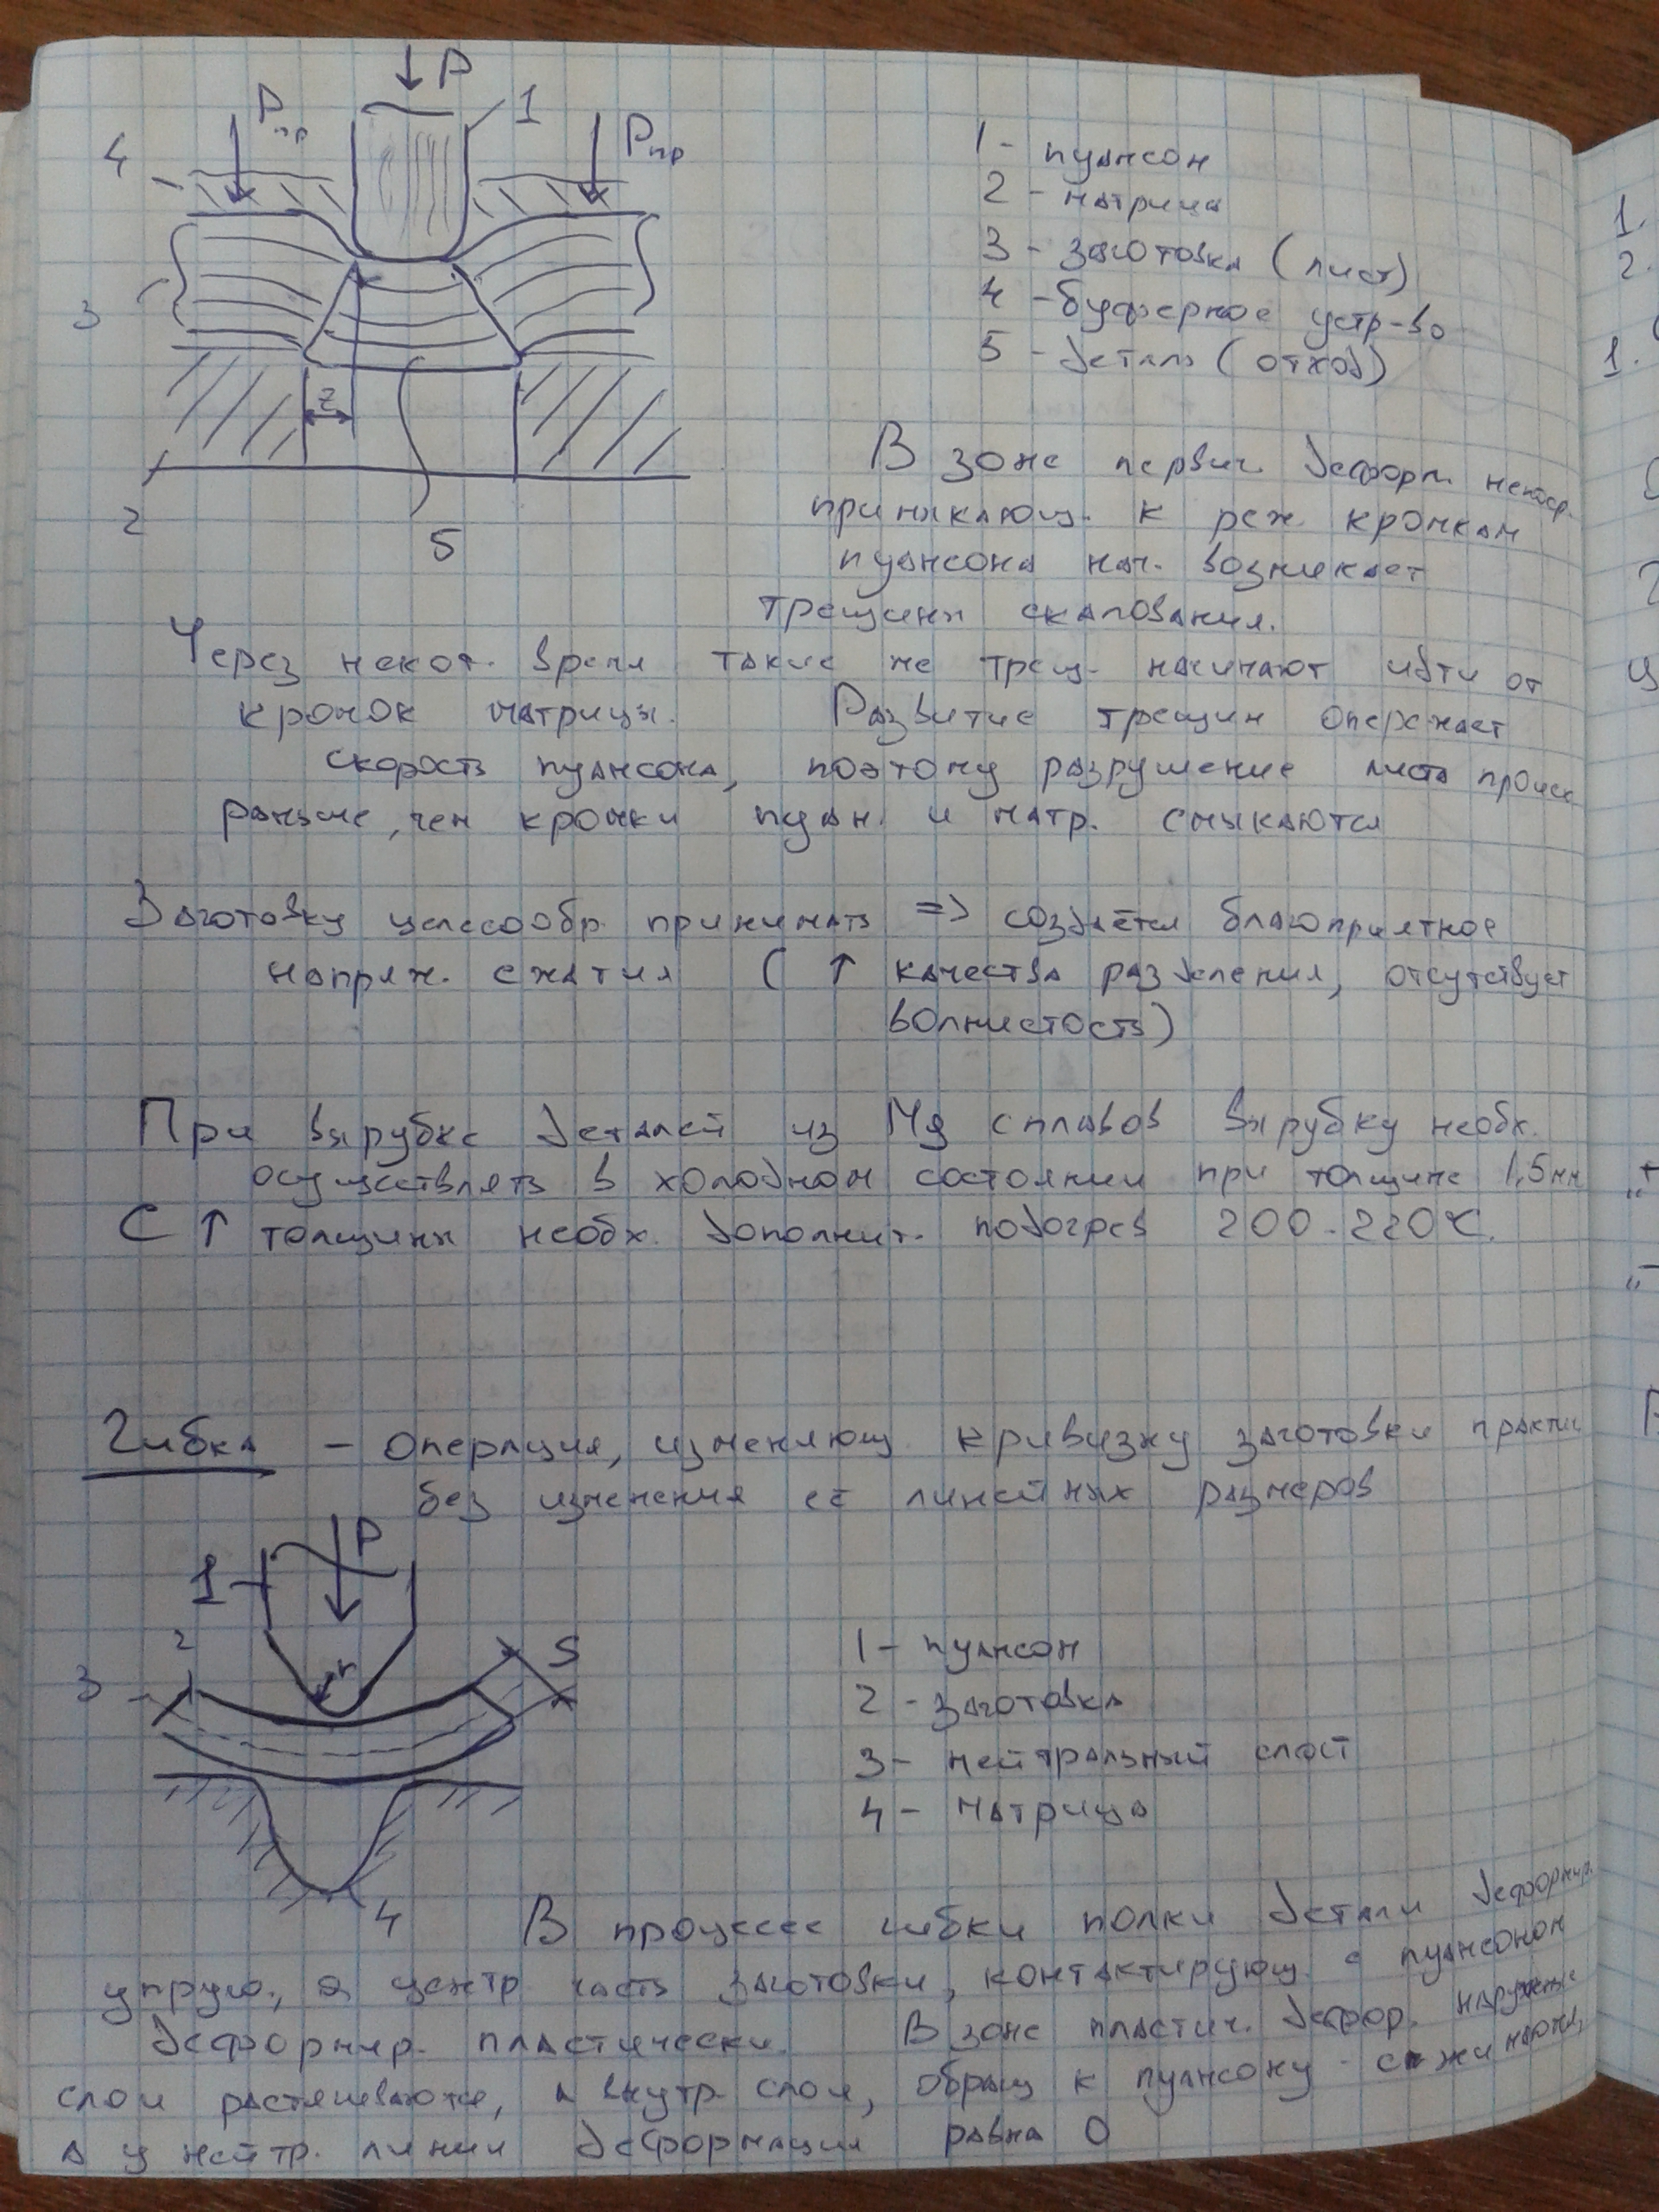 P
Pпр
1
Pпр
4
3
z
2
5
1 - пуансон
2 - матрица
3 - заготовка (лист)
4 - буферное устр-во
5 - деталь (отход)
В зоне первич. деформ. непоср.
примыкающ. к реж. кромкам
пуансона нач. возникает
трещины скалования.
Через некот. время такие же трещ. начинают идти от
кромок матрицы. Развитие трещин опережает
скорость пуансона, поэтому разрушение листа происх
раньше, чем кромки пуан. и матр. смыкаются
Заготовку целесообр. принимать => создаётся благоприятное
напряж. сжатия (↑ качества разделения, отсутствует
волнистость)
При вырубке деталей из Mg сплавов вырубку необх.
осуществлять в холодном состоянии при толщине 1,5мм
С ↑ толщины необх. дополнит. подогрев 200-220°C.
Гибка - операция, изменяющ. кривизну заготовки практич
без изменения её линейных размеров
P
1
2
r
S
3
4
1 - пуансон
2 - заготовка
3 - нейтральный слой
4 - матрица
В процессе гибки полки детали деформир.
упруго, а центр часть заготовки, контактирующ. с пуансоном
деформир. пластически. В зоне пластич. дефор. наружные
слои растягиваются, а внутр. слои, обращ к пуансону - сжимают,
а у нейтр. линии деформация равна 0
1.
2.
1.